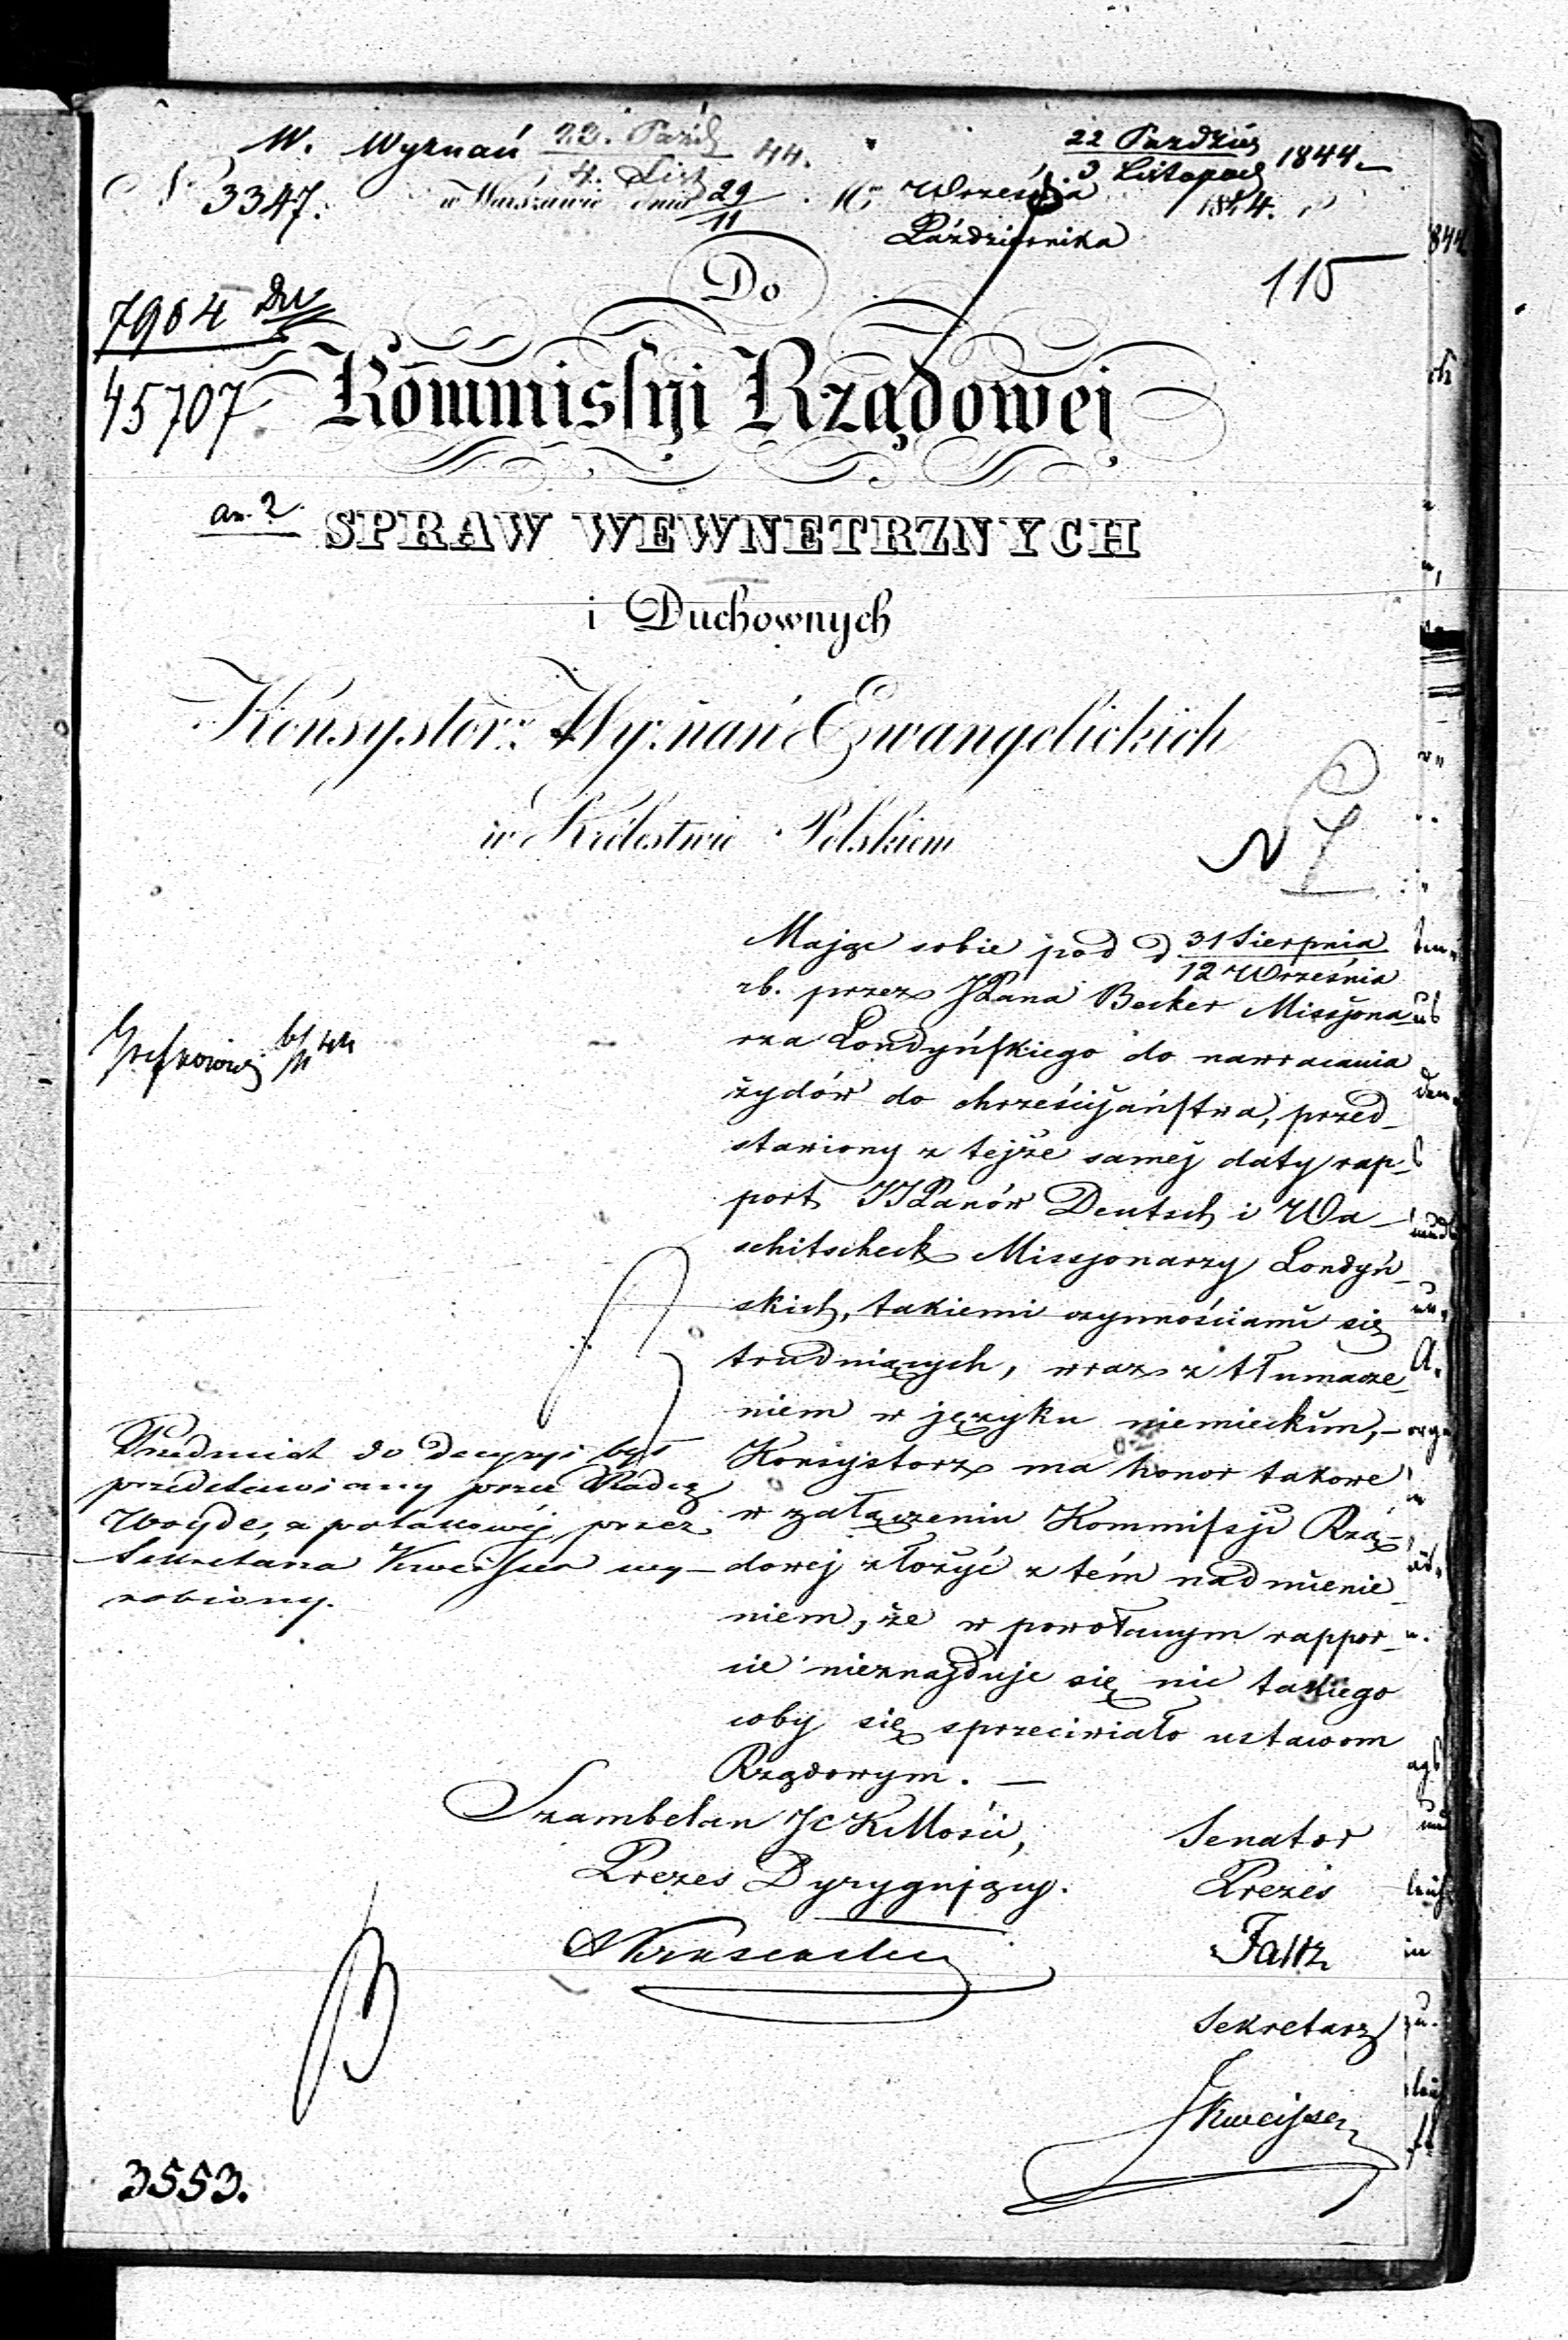 W. Wyznań 23. Paźd. / 4. List 44.
22 Paździer / 3 Listopad 1844
No 3347. w Warszawie dnia 29 / 11 Mca Września / Października 1844. r.
115
Do
7904
45707
Kommissyi Rządowej
an. 2
SPRAW WEWNETRZNYCH
i Duchownych
Konsystorz Wyznań Ewangelickich
w Królestwie Polskiem
Mając sobie pod d 31 Sierpnia / 12 Września
rb. przez JPana Becker Missjona
rza Londyńskiego do nawracania
żydów do chrześcijaństwa, przed-
stawiony z tejże samej daty rap-
port JJPanów Deutsch i Wa-
schitscheck Missjonarzy Londyń-
skich, takiemi czynnościami się
trudniących, wraz z tłumacze-
niem w języku niemieckim,-
Konsystorz ma honor takowe
w załączeniu Kommissji Rzą-
dowej złożyć z tém nadmienie-
niem, że w powołanym rappor-
cie nieznajduje się nic takiego
coby się sprzeciwiało ustawom
Rządowym. —
Przedmiot do decyzyi był
przedstawiony przez Radcę
Woyde, a przez
Sekretarza Kweisser wy-
robiony.
Szambelan JCKMości,
Prezes Dyrygujący.
Senator
Prezes
Faltz
Sekretarz
Kweisser
3553.